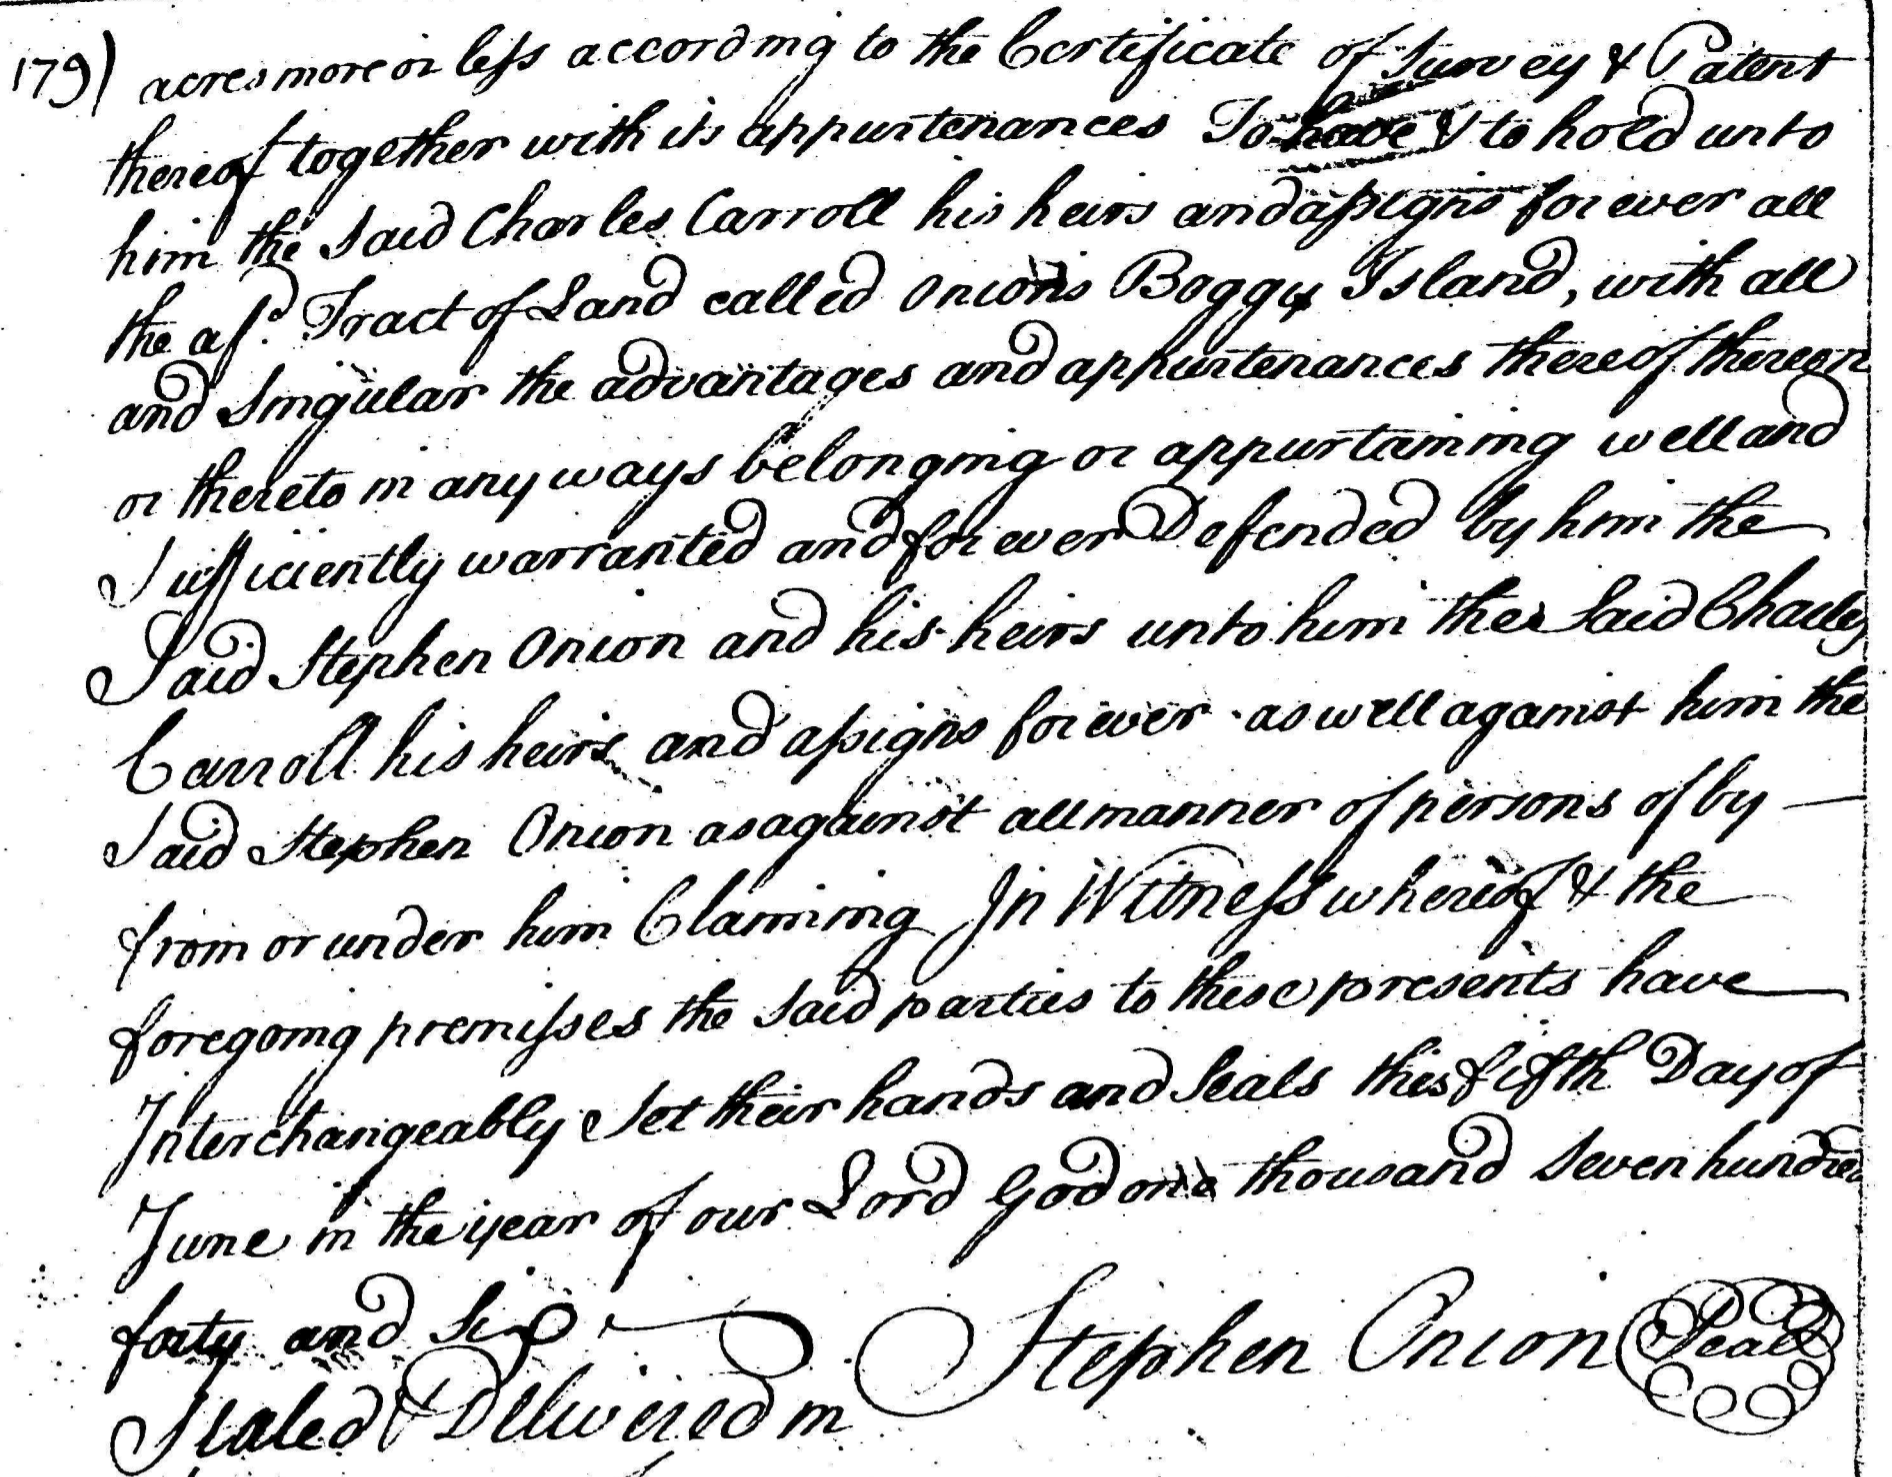 179) acres more or less according to the Certificate of Survey & Patent
thereof together with its appurtenances To have & to hold unto
him the Said Charles Carroll his heirs and assigns for ever all
the afs.d Tract of Land called Onions Boggy Island, with all
and Singular the advantages and appurtenances thereof thereon
or thereto in any ways belonging or appurtaining well and
Sufficiently warranted and for ever Defended by him the
Said Stephen Onion and his heirs unto him the Said Charles
Carroll his heirs and assigns for ever as well against him the
Said Stephen Onion as against all manner of persons of by —
from or under him Claiming In Witness whereof & the
foregoing premisses the Said parties to these presents have
Interchangeably Set their hands and Seals this fifth Day of
June in the year of our Lord God one thousand Seven hundred
forty and Six Stephen Onion Seal
Sealed & Delivered in